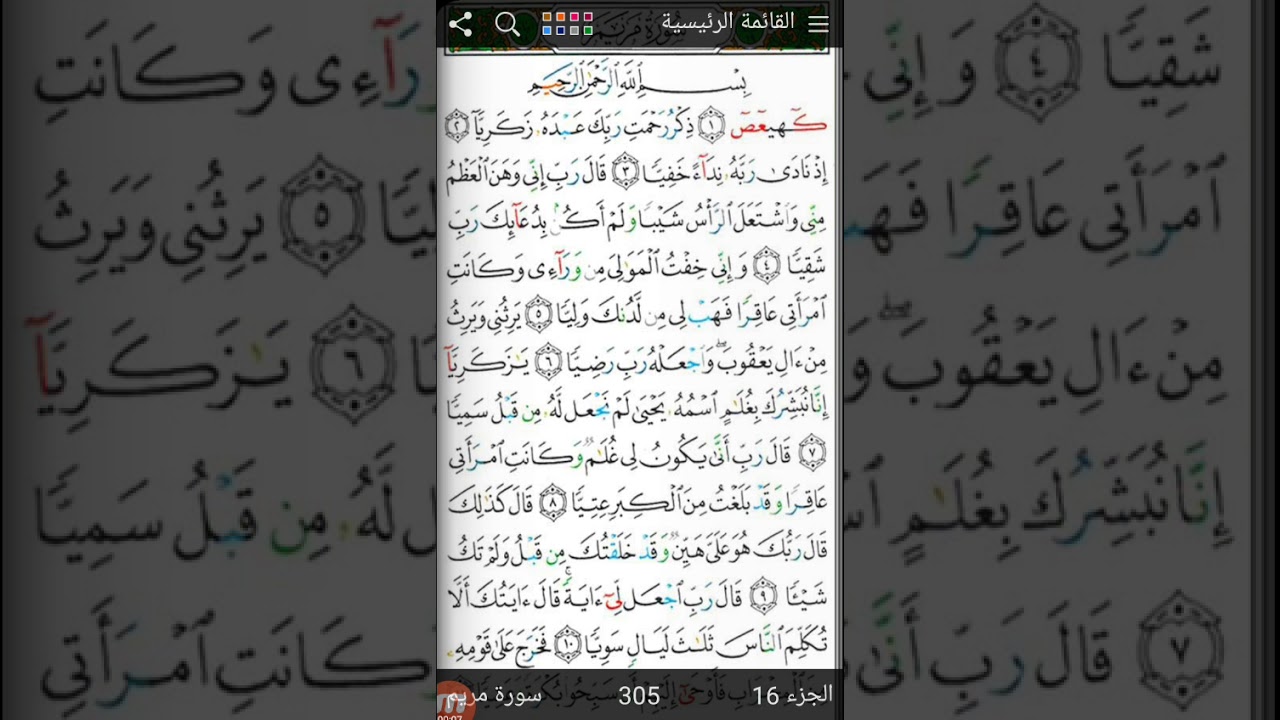 القائمة الرئيسية
سورة مريم
بِسْمِ ٱللَّهِ ٱلرَّحْمَٰنِ ٱلرَّحِيمِ
كٓهيعٓصٓ ١ ذِكْرُ رَحْمَتِ رَبِّكَ عَبْدَهُۥ زَكَرِيَّآ ٢
إِذْ نَادَىٰ رَبَّهُۥ نِدَآءً خَفِيًّا ٣ قَالَ رَبِّ إِنِّى وَهَنَ ٱلْعَظْمُ
مِنِّى وَٱشْتَعَلَ ٱلرَّأْسُ شَيْبًا وَلَمْ أَكُنۢ بِدُعَآئِكَ رَبِّ
شَقِيًّا ٤ وَإِنِّى خِفْتُ ٱلْمَوَٰلِىَ مِن وَرَآءِى وَكَانَتِ
ٱمْرَأَتِى عَاقِرًا فَهَبْ لِى مِن لَّدُنكَ وَلِيًّا ٥ يَرِثُنِى وَيَرِثُ
مِنْ ءَالِ يَعْقُوبَ ۖ وَٱجْعَلْهُ رَبِّ رَضِيًّا ٦ يَٰزَكَرِيَّآ
إِنَّا نُبَشِّرُكَ بِغُلَٰمٍ ٱسْمُهُۥ يَحْيَىٰ لَمْ نَجْعَل لَّهُۥ مِن قَبْلُ سَمِيًّا
٧ قَالَ رَبِّ أَنَّىٰ يَكُونُ لِى غُلَٰمٌ وَكَانَتِ ٱمْرَأَتِى
عَاقِرًا وَقَدْ بَلَغْتُ مِنَ ٱلْكِبَرِ عِتِيًّا ٨ قَالَ كَذَٰلِكَ
قَالَ رَبُّكَ هُوَ عَلَىَّ هَيِّنٌ وَقَدْ خَلَقْتُكَ مِن قَبْلُ وَلَمْ تَكُ
شَيْـًٔا ٩ قَالَ رَبِّ ٱجْعَل لِّىٓ ءَايَةً ۚ قَالَ ءَايَتُكَ أَلَّا
تُكَلِّمَ ٱلنَّاسَ ثَلَٰثَ لَيَالٍ سَوِيًّا ١٠ فَخَرَجَ عَلَىٰ قَوْمِهِۦ
الجزء 16 305 سورة مريم
00:07